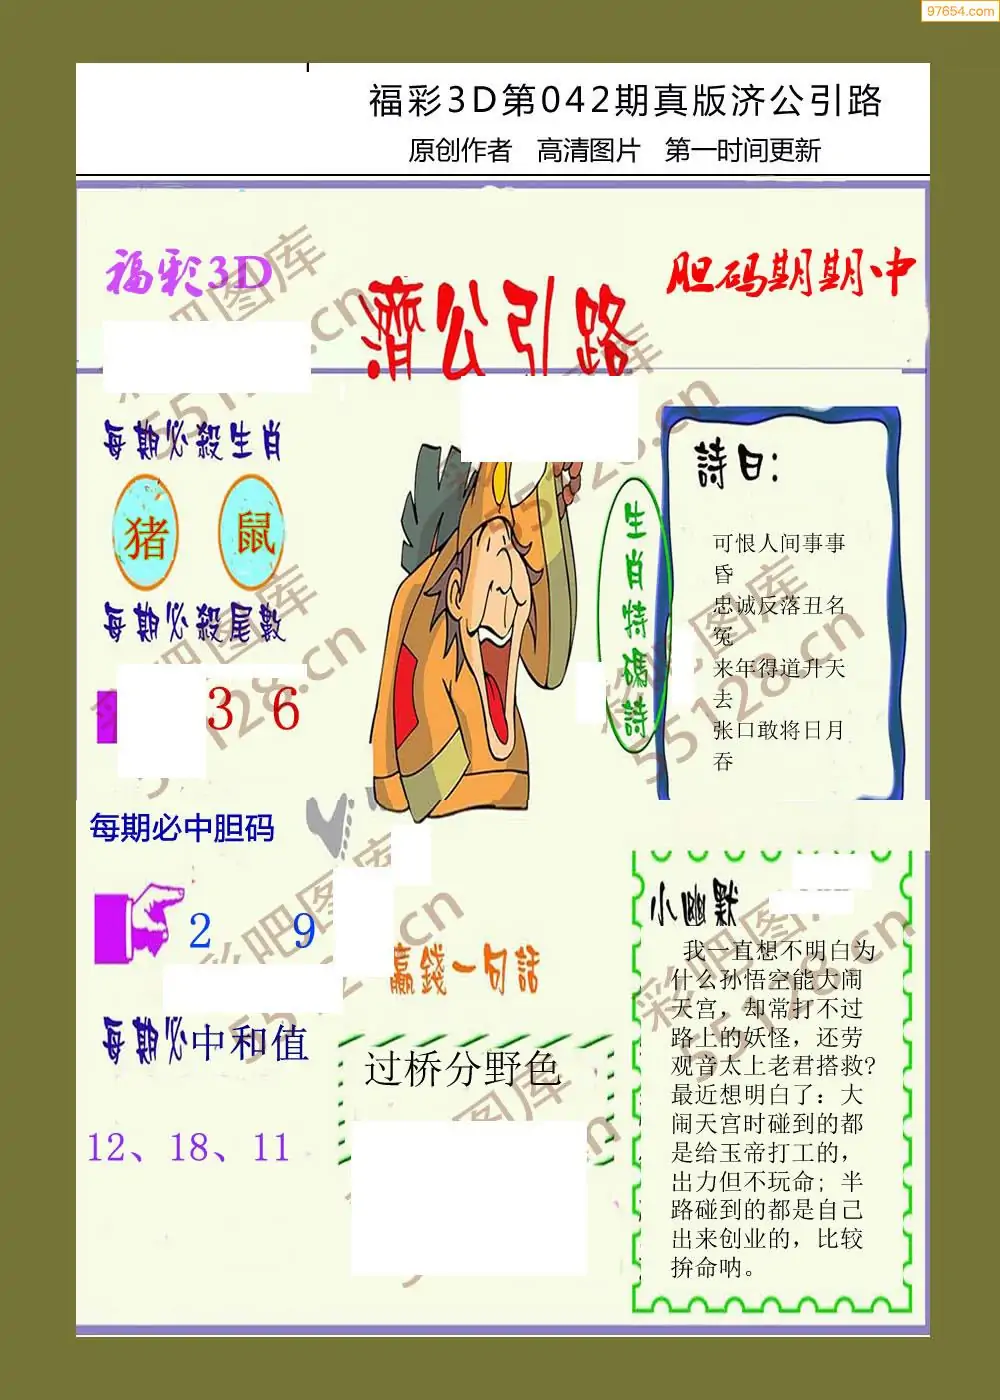 97654.com
福彩3D第042期真版济公引路
原创作者 高清图片 第一时间更新
福彩3D
濟公引路
胆码期期中
每期必殺生肖
猪 鼠
每期必殺尾數
3 6
每期必中胆码
2 9
每期必中和值
12、18、11
生肖特碼詩
詩曰：
可恨人间事事
昏
忠诚反落丑名
冤
来年得道升天
去
张口敢将日月
吞
贏錢一句話
过桥分野色
小幽默
我一直想不明白为
什么孙悟空能大闹
天宫，却常打不过
路上的妖怪，还劳
观音太上老君搭救?
最近想明白了：大
闹天宫时碰到的都
是给玉帝打工的，
出力但不玩命；半
路碰到的都是自己
出来创业的，比较
拚命呐。
彩吧图库
55128.cn